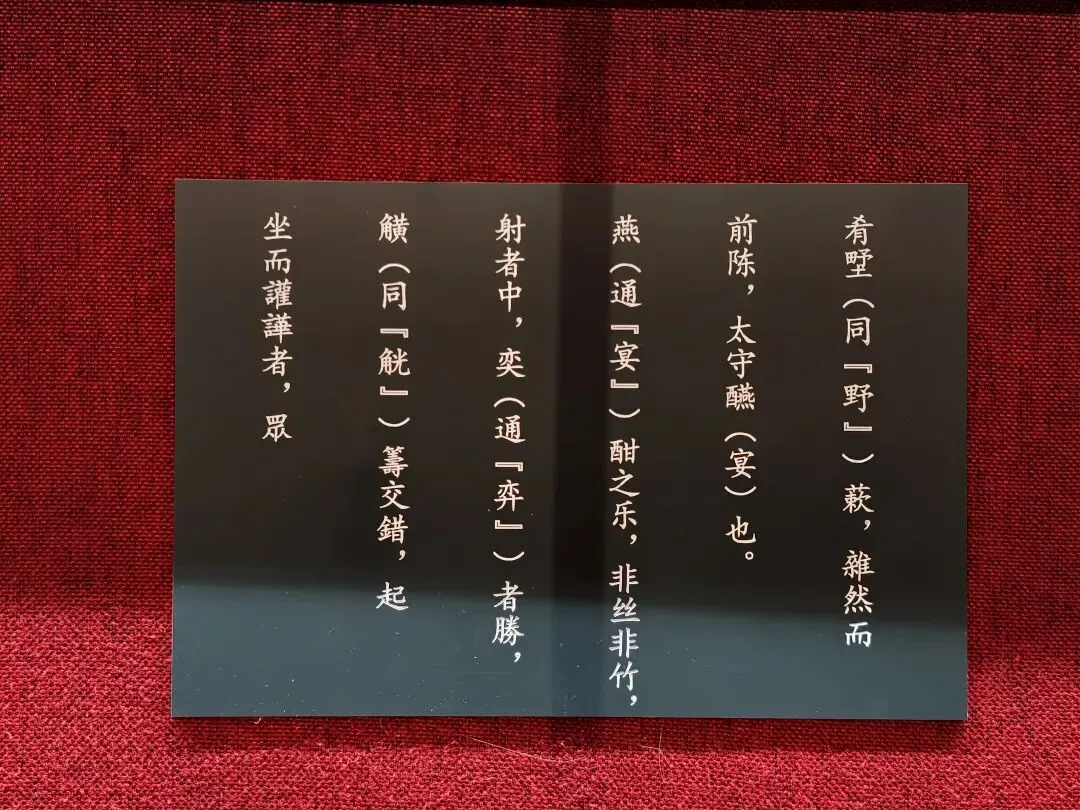 肴墅（同『野』）蔌，雜然而
前陈，太守醼（宴）也。
燕（通『宴』）酣之乐，非丝非竹，
射者中，奕（通『弈』）者勝，
觵（同『觥』）籌交錯，起
坐而讙譁者，眾